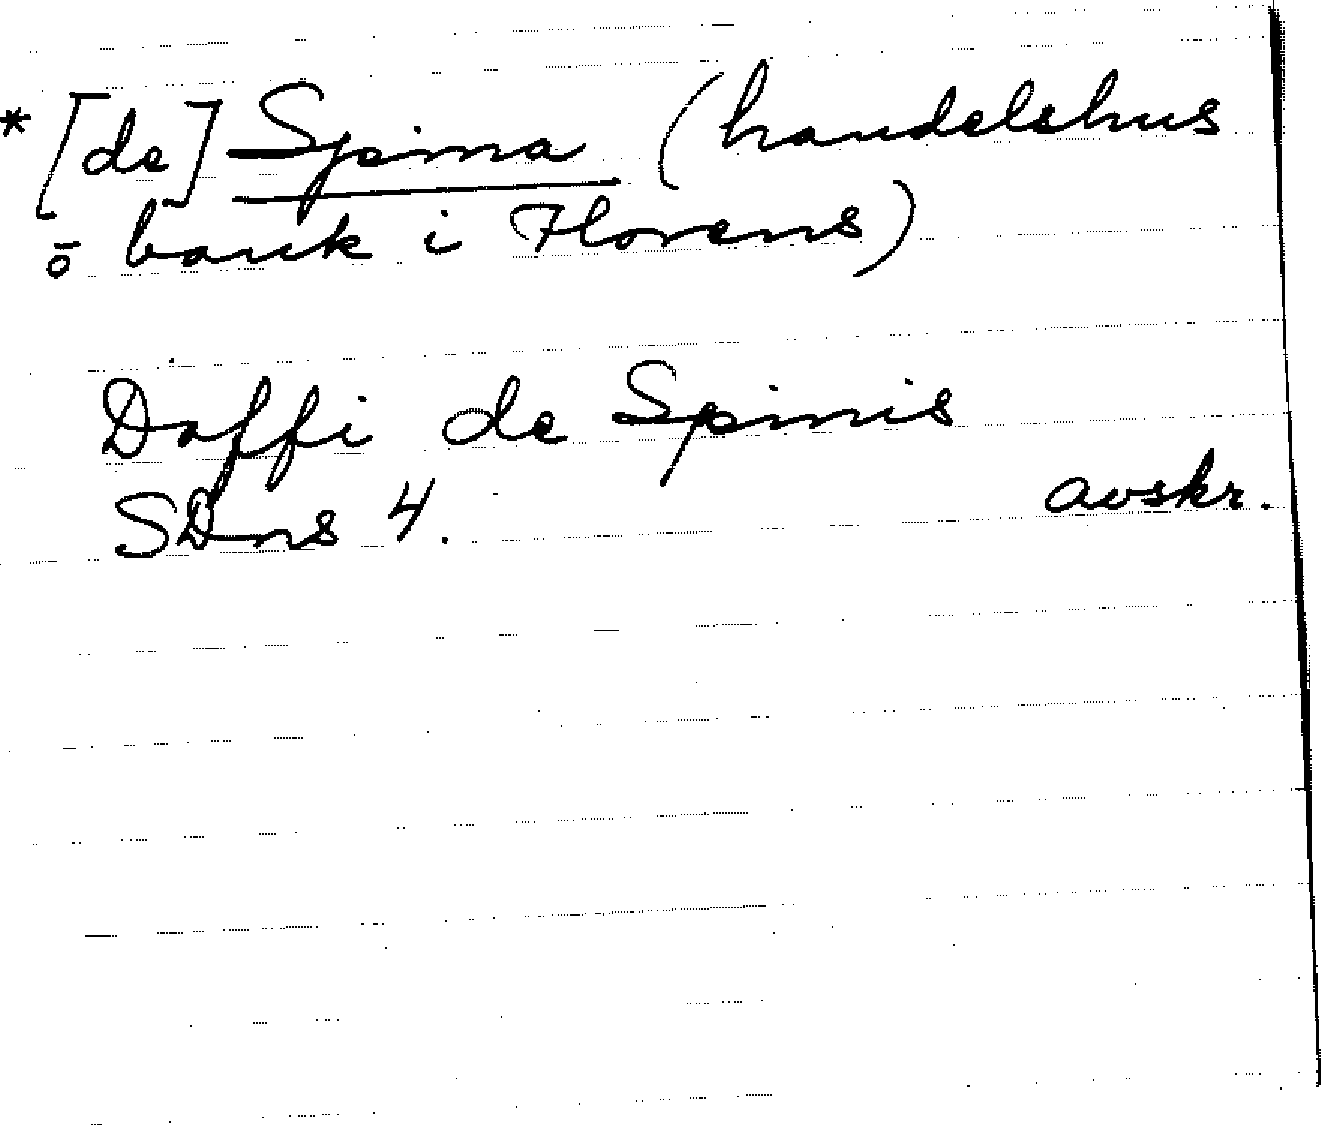 * [de] Spina (handelshus
ō bank i Florens)
Doffi de Spinis
SDns 4. avskr.